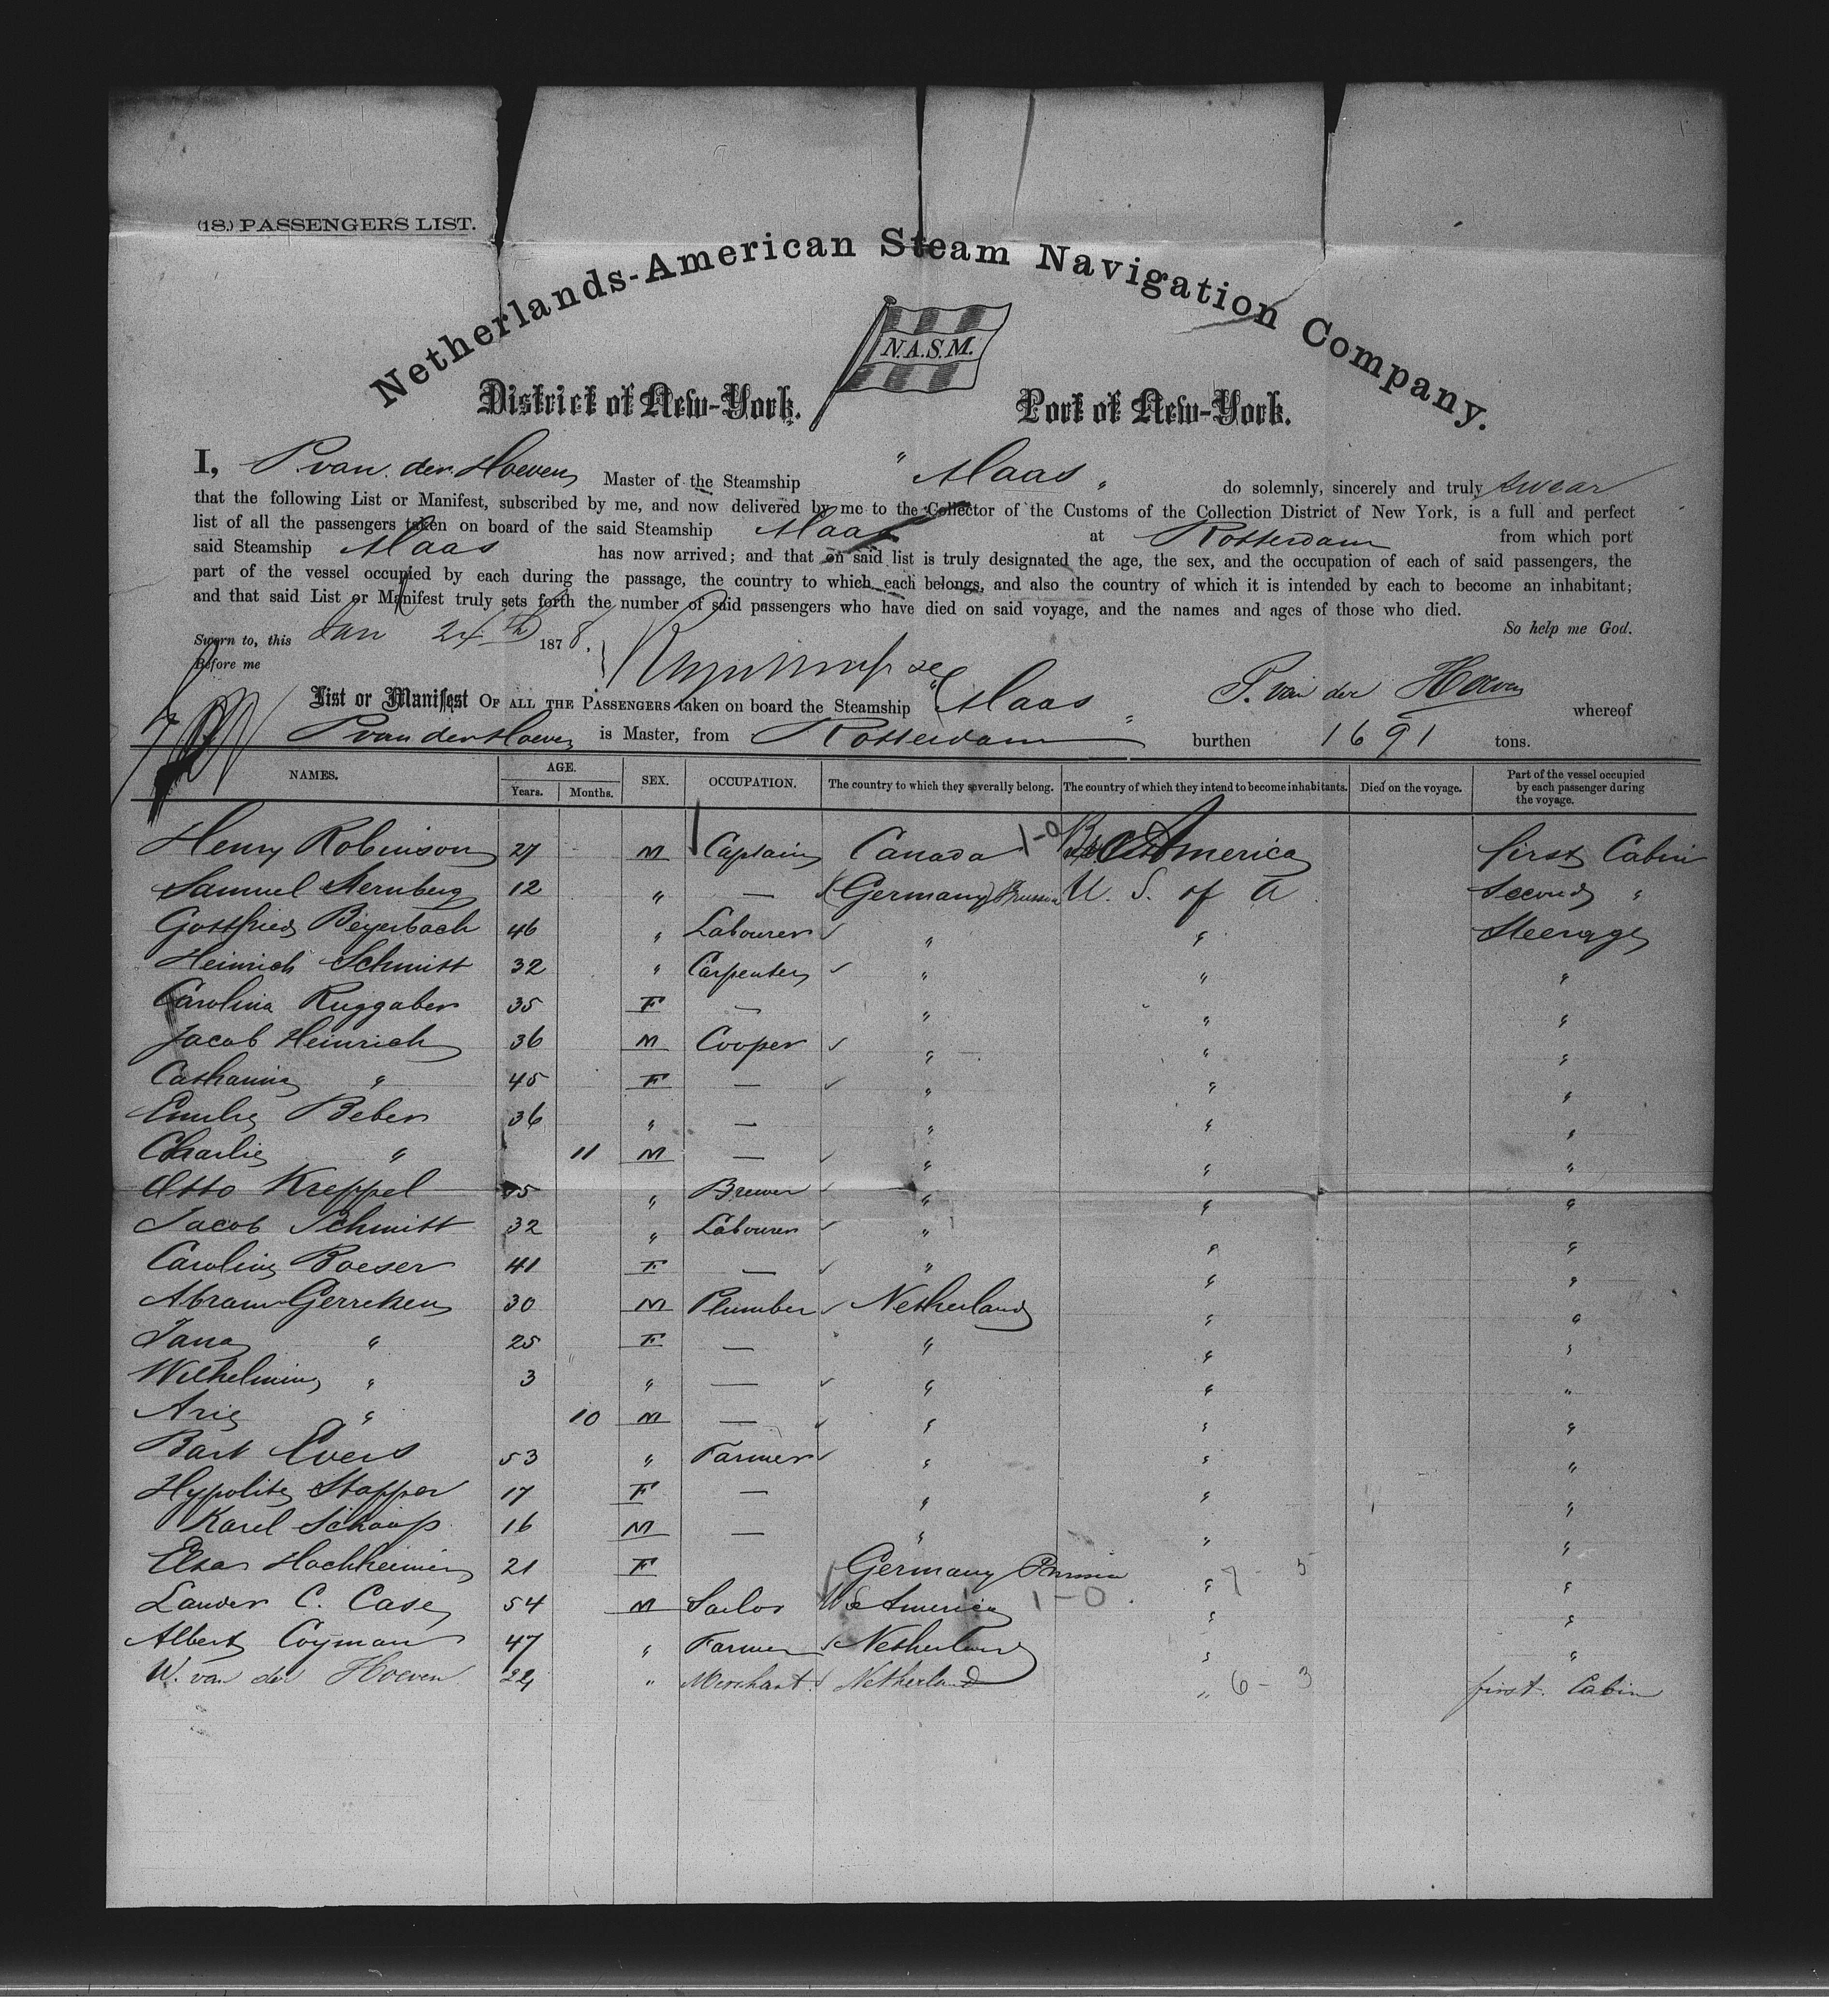 (18.) PASSENGERS LIST.
Netherlands-American Steam Navigation Company.
N.A.S.M.
District of New-York. Port of New-York.
I, P. van der Hoeven Master of the Steamship "Maas" do solemnly, sincerely and truly swear
that the following List or Manifest, subscribed by me, and now delivered by me to the Collector of the Customs of the Collection District of New York, is a full and perfect
list of all the passengers taken on board of the said Steamship Maas at Rotterdam from which port
said Steamship Maas has now arrived; and that on said list is truly designated the age, the sex, and the occupation of each of said passengers, the
part of the vessel occupied by each during the passage, the country to which each belongs, and also the country of which it is intended by each to become an inhabitant;
and that said List or Manifest truly sets forth the number of said passengers who have died on said voyage, and the names and ages of those who died.
So help me God.
Sworn to, this Jan 24th 1878.
Before me
P. van der Hoeven
List or Manifest OF ALL THE PASSENGERS taken on board the Steamship "Maas" whereof
P van der Hoeven is Master, from Rotterdam burthen 1691 tons.
NAMES. AGE. Years. Months. SEX. OCCUPATION. The country to which they severally belong. The country of which they intend to become inhabitants. Died on the voyage. Part of the vessel occupied by each passenger during the voyage.
Henry Robinson 27 M Captain Canada 1-0 America first Cabin
Samuel Sternberg 12 " — Germany Prussia U. S. of A Second "
Gottfried Beyerbach 46 " Labourer " " Steerage
Heinrich Schmitt 32 " Carpenter " " "
Carolina Ruggaber 35 F — " " "
Jacob Heinrich 36 M Cooper " " "
Catharina " 45 F — " " "
Emilie Beber 36 " — " " "
Charlie " 11 M — " " "
Otto Kreppel 25 " Brewer " " "
Jacob Schmitt 32 " Labourer " " "
Caroline Boeser 41 F — " " "
Abram Gerreken 30 M Plumber Netherland " "
Jana " 25 F — " " "
Wilhelmina " 3 " — " " "
Arie " 10 M — " " "
Bart Evers 53 " Farmer " " "
Hypolite Stapper 17 F — " " "
Karel Schaap 16 M — " " "
Elsa Hochheimer 21 F Germany Prussia " 7 - 5 "
Lander C. Case 54 M Sailor America 1-0 " "
Albert Coyman 47 " Farmer Netherland " "
W. van der Hoeven 24 " Merchant Netherland " 6 - 3 first Cabin